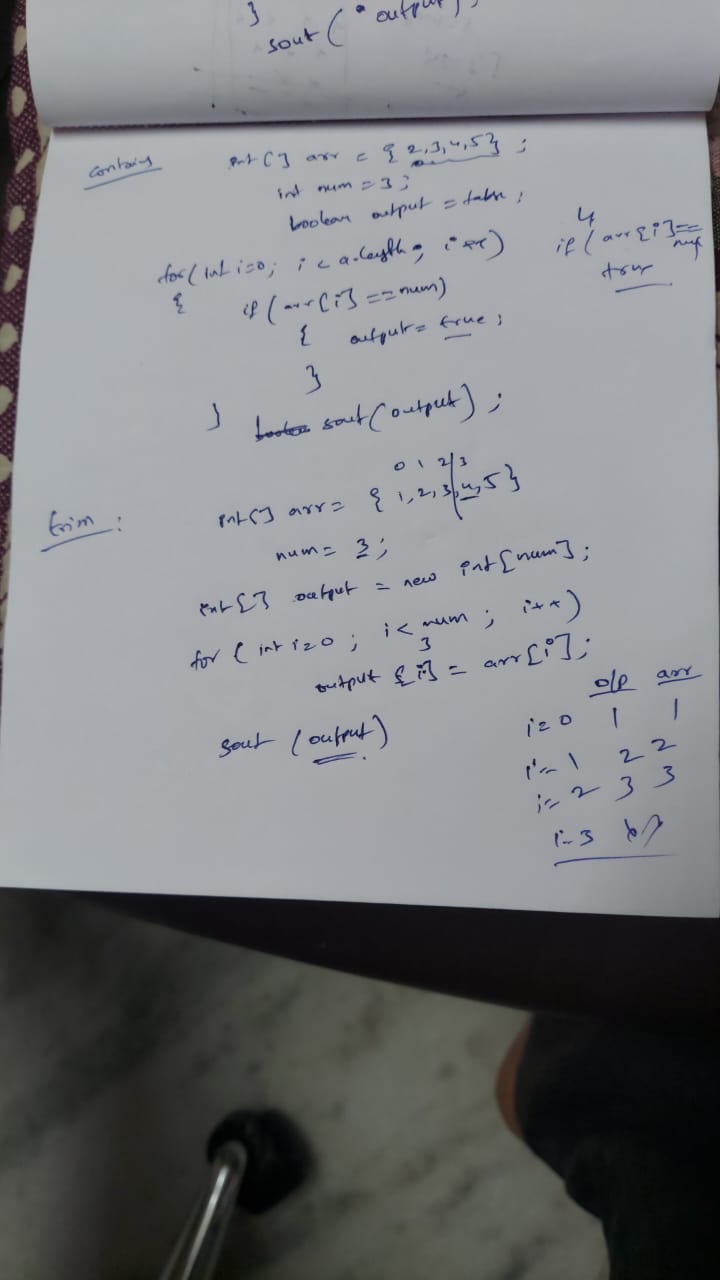 }
sout ( output ) ;
contains
int [] arr = { 2,3,4,5} ;
int num = 3 ;
boolean output = false ;
for ( int i=0; i < a.length ; i++ )
{ if ( arr[i] == num )
{ output = true ;
}
}
sout ( output ) ;
4
if ( arr[i] ==
true
trim :
0 1 2 3
int [] arr = { 1,2,3,4,5}
num = 3 ;
int [] output = new int [num] ;
for ( int i=0 ; i < num ; i++ )
3
output [i] = arr [i] ;
sout ( output )
o/p arr
i=0 1 1
i=1 2 2
i=2 3 3
i=3